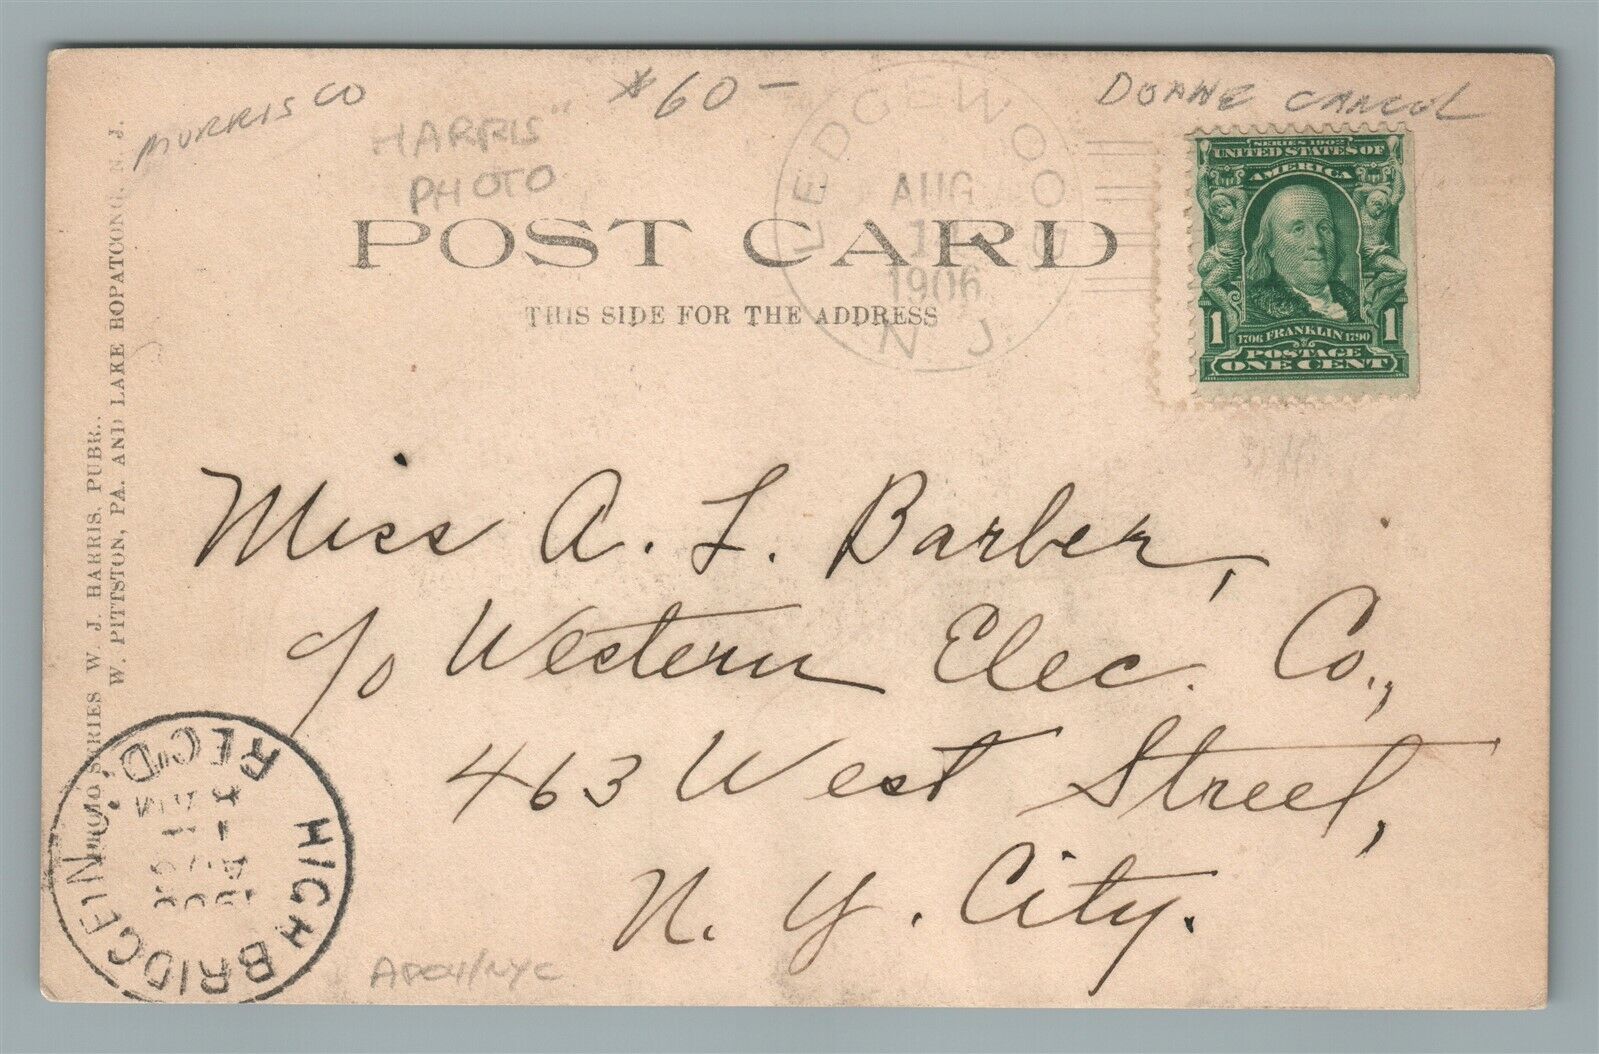 MORRIS CO
HARRIS"
PHOTO
$60-
DOANE CANCEL
LEDGEWOOD
AUG
1906
N. J.
SERIES 1902
UNITED STATES OF
AMERICA
1 1
1706 FRANKLIN 1790
POSTAGE
ONE CENT
POST CARD
THIS SIDE FOR THE ADDRESS
PHOTO SERIES W. J. HARRIS, PUBR.,
W. PITTSTON, PA. AND LAKE HOPATCONG, N. J.
Miss A. L. Barber,
c/o Western Elec. Co.,
463 West Street,
N. Y. City.
HIGH BRIDGE
REC'D.